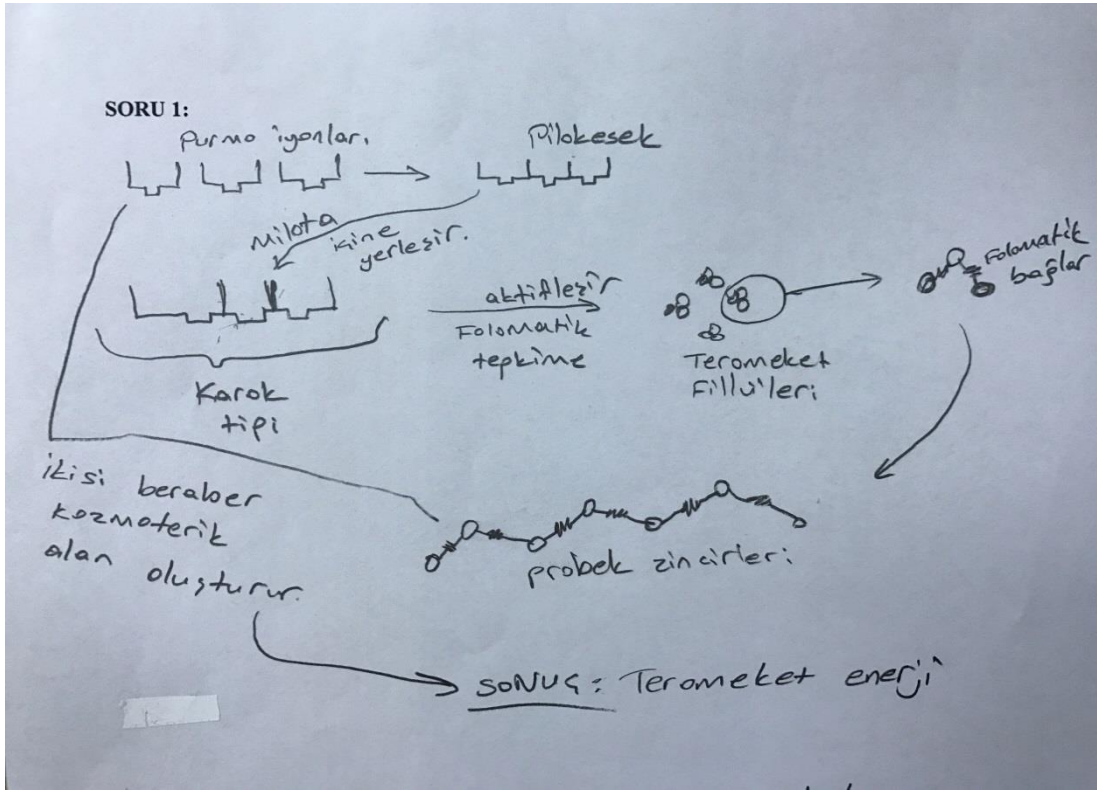 SORU 1:
Purmo iyonları
Pilokesek
Milota içine
yerleşir.
aktifleşir
Folomatik
tepkime
Folomatik
bağlar
Teromeket
Fillü'leri
Karok
tipi
ikisi beraber
kozmoterik
alan oluşturur.
probek zincirleri
SONUÇ: Teromeket enerji